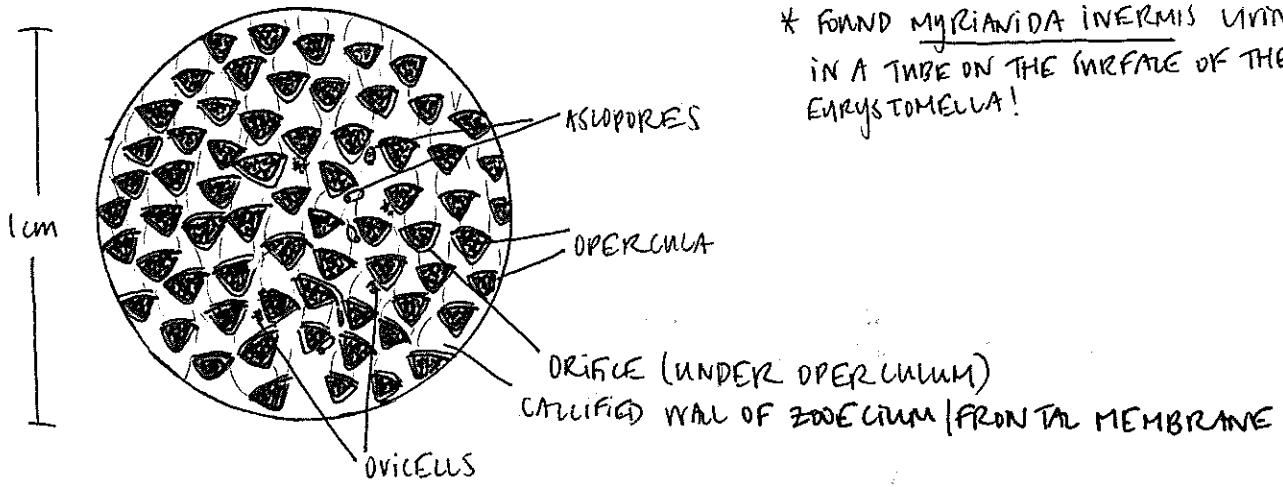 * FOUND MYRIANIDA INERMIS
IN A TUBE ON THE SURFACE OF THE
EURYSTOMELLA!
ASCOPORES
1cm
OPERCULA
ORIFICE (UNDER OPERCULUM)
CALCIFIED WALL OF ZOOECIUM/FRONTAL MEMBRANE
OVICELLS